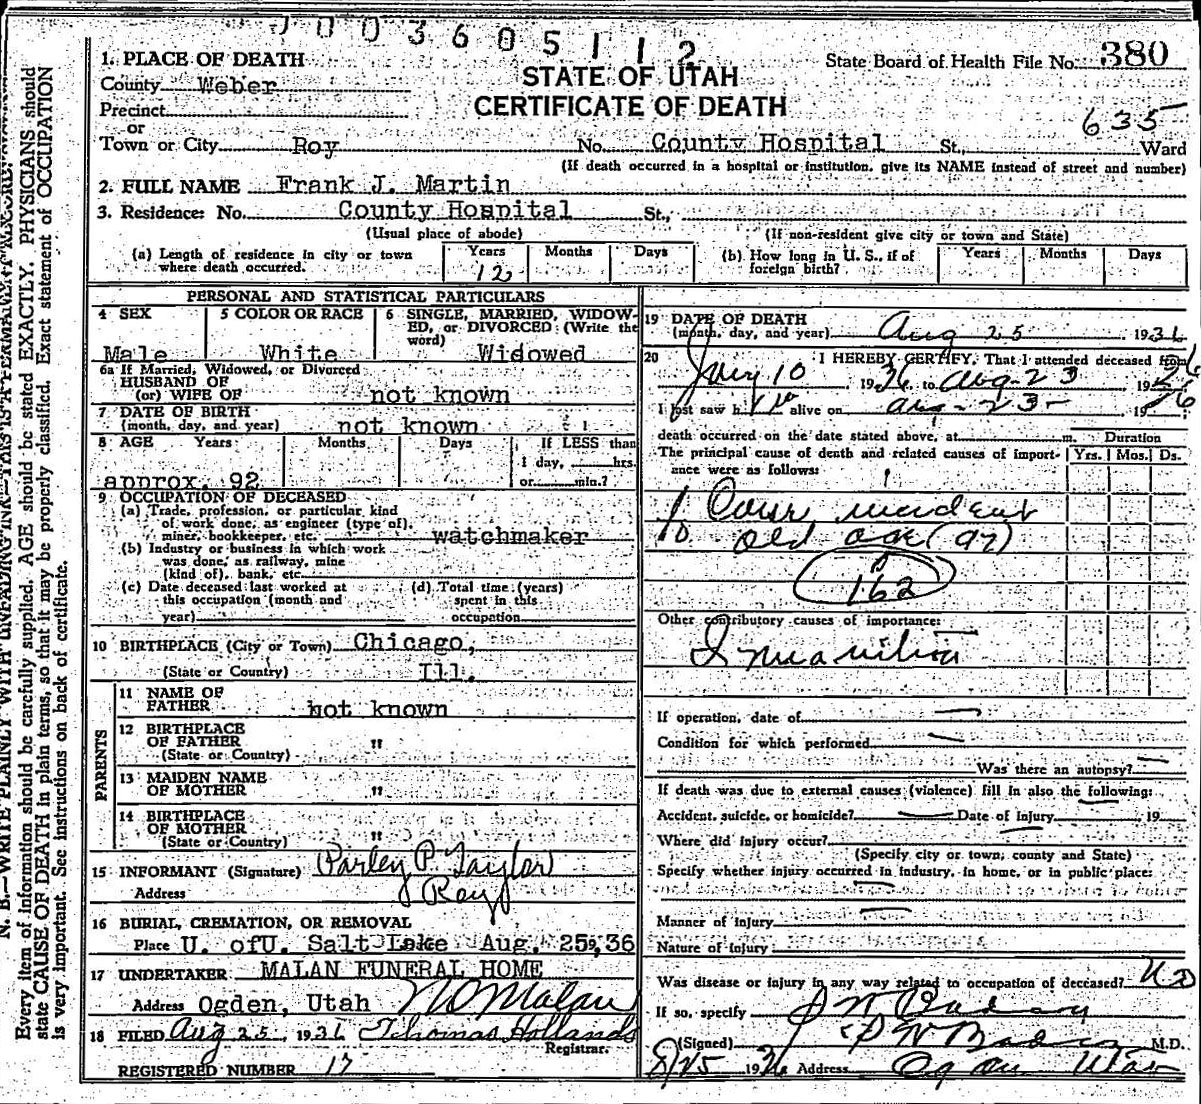 003605112
1. PLACE OF DEATH
County Weber
Precinct
or
Town or City Roy No. County Hospital St., Ward
STATE OF UTAH
CERTIFICATE OF DEATH
State Board of Health File No. 380
635
(If death occurred in a hospital or institution, give its NAME instead of street and number)
2. FULL NAME Frank J. Martin
3. Residence: No. County Hospital St.,
(Usual place of abode) (If non-resident give city or town and State)
(a) Length of residence in city or town where death occurred. Years 12 Months Days
(b) How long in U. S., if of foreign birth? Years Months Days
PERSONAL AND STATISTICAL PARTICULARS
4 SEX
Male
5 COLOR OR RACE
White
6 SINGLE, MARRIED, WIDOWED, or DIVORCED: (Write the word)
Widowed
6a If Married, Widowed, or Divorced
HUSBAND OF
(or) WIFE OF not known
7 DATE OF BIRTH
(month, day, and year) not known
8 AGE Years Months Days If LESS than
1 day, hrs.
or min.?
approx. 92
9 OCCUPATION OF DECEASED
(a) Trade, profession, or particular kind
of work done, as engineer (type of),
miner, bookkeeper, etc. watchmaker
(b) Industry or business in which work
was done, as railway, mine
(kind of), bank, etc.
(c) Date deceased last worked at
this occupation (month and
year)
(d) Total time (years)
spent in this
occupation
10 BIRTHPLACE (City or Town) Chicago,
(State or Country) Ill.
PARENTS
11 NAME OF
FATHER not known
12 BIRTHPLACE
OF FATHER "
(State or Country)
13 MAIDEN NAME
OF MOTHER "
14 BIRTHPLACE
OF MOTHER "
(State or Country)
15 INFORMANT (Signature) Parley P. Taylor
Address Roy
16 BURIAL, CREMATION, OR REMOVAL
Place U. of U. Salt Lake Aug. 25, 36
17 UNDERTAKER MALAN FUNERAL HOME
Address Ogden, Utah Malan
18 FILED Aug 25, 1936 Thomas Hollands
Registrar.
REGISTERED NUMBER 17
19 DATE OF DEATH
(month, day, and year) Aug 25 1936
20 I HEREBY CERTIFY, That I attended deceased from
10 1936 to Aug-23 1936
I last saw h alive on Aug-23- 1936
death occurred on the date stated above, at m.
Duration
The principal cause of death and related causes of importance were as follows: Yrs. Mos. Ds.
old age
162
Other contributory causes of importance:
Inanition
If operation, date of
Condition for which performed
Was there an autopsy?
If death was due to external causes (violence) fill in also the following:
Accident, suicide, or homicide? Date of injury 19
Where did injury occur?
(Specify city or town, county and State)
Specify whether injury occurred in industry, in home, or in public place:
Manner of injury
Nature of injury
Was disease or injury in any way related to occupation of deceased? No
If so, specify
(Signed) M.D.
8/25 1936 Address Ogden Utah
Every item of information should be carefully supplied. AGE should be stated EXACTLY. PHYSICIANS should
state CAUSE OF DEATH in plain terms, so that it may be properly classified. Exact statement of OCCUPATION
is very important. See instructions on back of certificate.